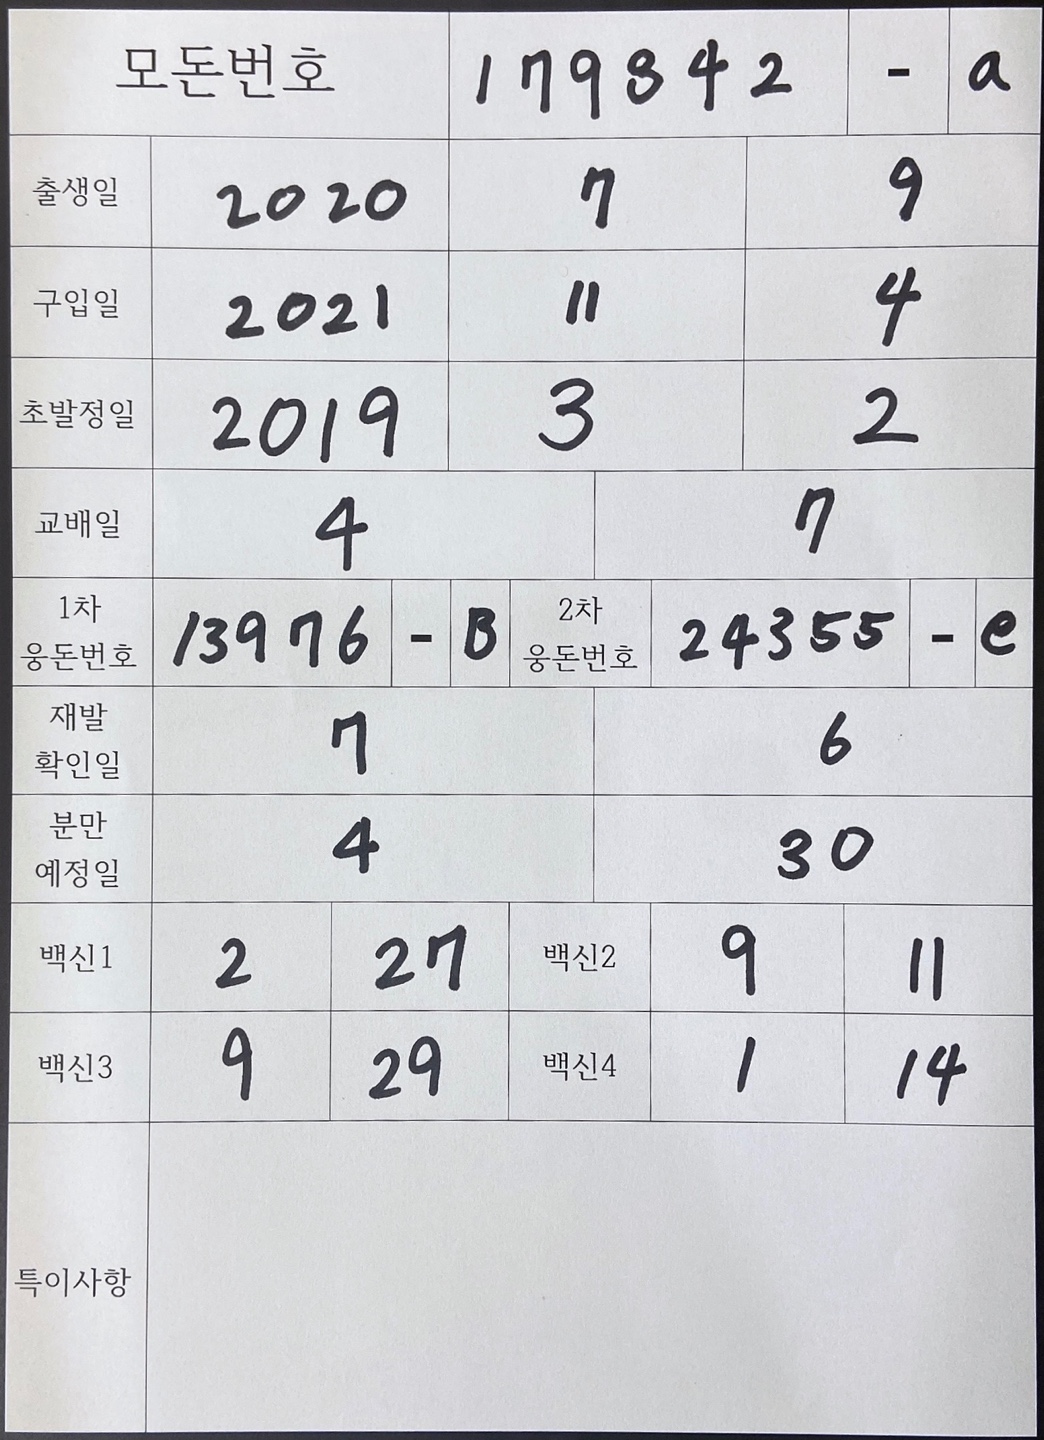 모돈번호 179842 - a
출생일 2020 7 9
구입일 2021 11 4
초발정일 2019 3 2
교배일 4 7
1차 웅돈번호 13976 - B 2차 웅돈번호 24355 - e
재발 확인일 7 6
분만 예정일 4 30
백신1 2 27 백신2 9 11
백신3 9 29 백신4 1 14
특이사항